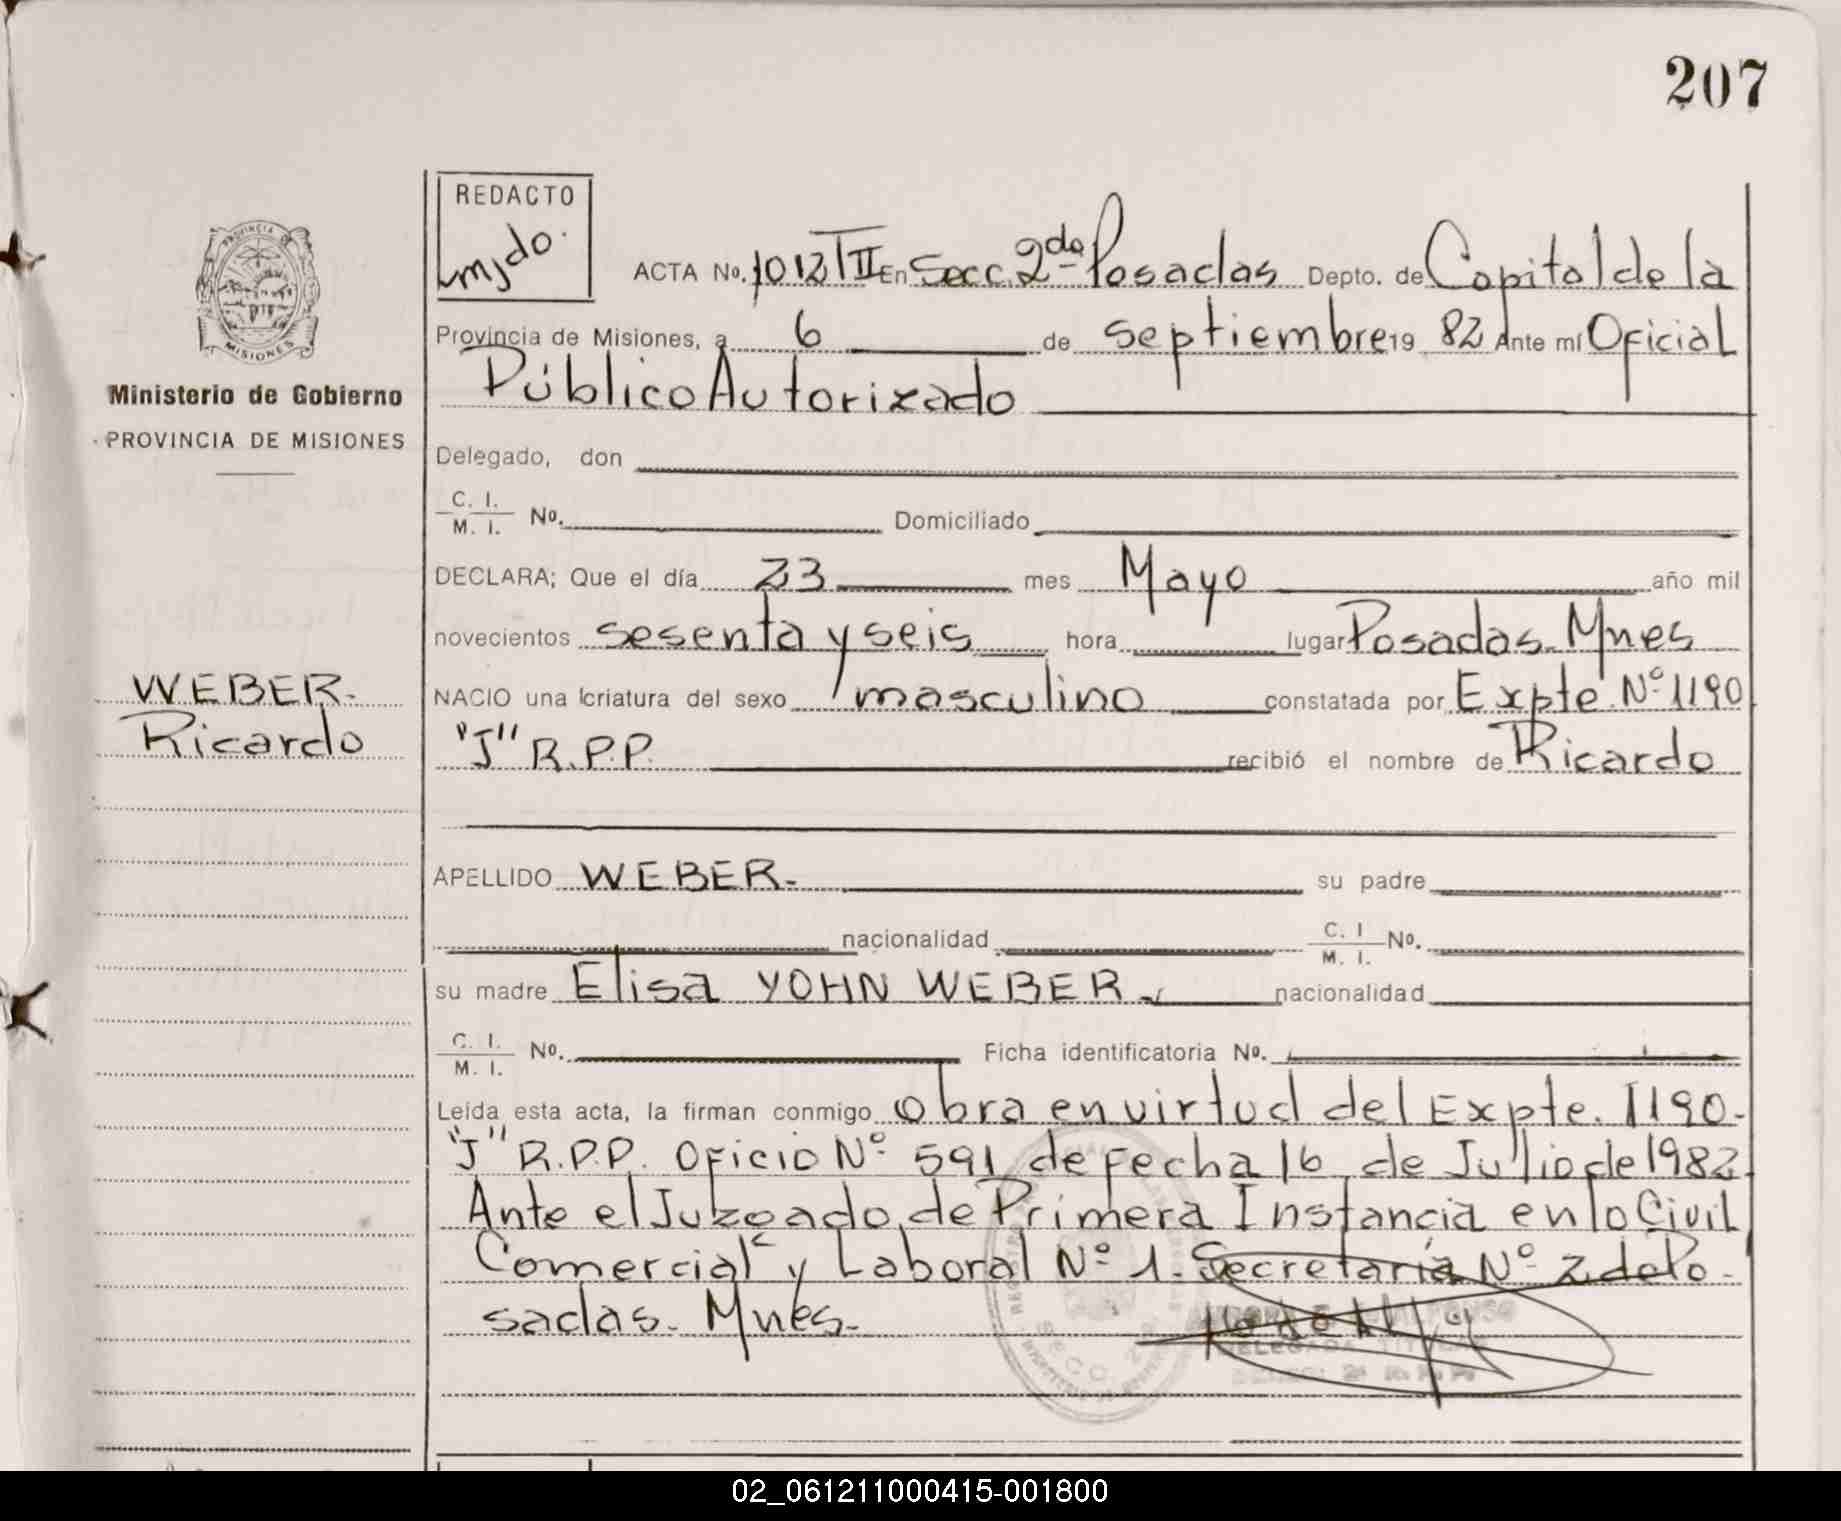 207
REDACTO
mjdo.
ACTA No. 1012 TII En Secc. 2da Posadas Depto. de Capital de la
Provincia de Misiones, a 6 de septiembre 19 82 Ante mí Oficial
Público Autorizado
Delegado, don
C. I.
M. I. No. Domiciliado
DECLARA; Que el día 23 mes Mayo año mil
novecientos sesenta y seis hora lugar Posadas. Mnes
NACIO una criatura del sexo masculino constatada por Expte. Nº 1190
"J" R.P.P. recibió el nombre de Ricardo
APELLIDO WEBER. su padre
nacionalidad C. I. M. I. No.
su madre Elisa YOHN WEBER nacionalidad
C. I.
M. I. No. Ficha identificatoria No.
Leída esta acta, la firman conmigo Obra en virtud del Expte. 1190-
"J" R.P.P. Oficio Nº 591 de fecha 16 de Julio de 1982
Ante el Juzgado de Primera Instancia en lo Civil
Comercial y Laboral Nº 1. Secretaria Nº 2 de Po-
sadas. Mnes.
PROVINCIA DE
MISIONES
Ministerio de Gobierno
PROVINCIA DE MISIONES
WEBER.
Ricardo
02_061211000415-001800